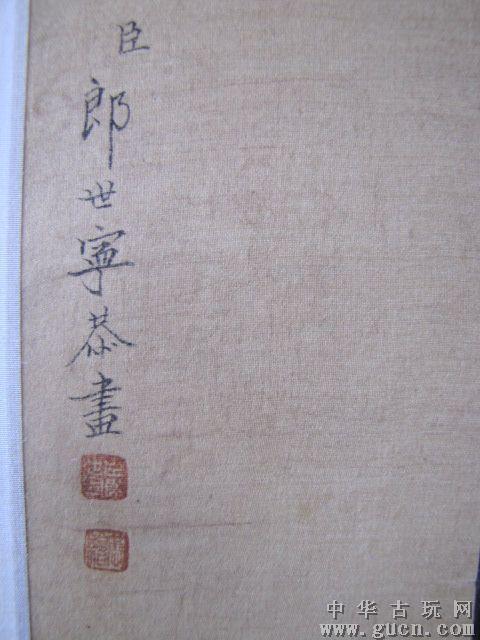 臣
郎世寧恭畫
中华古玩网
www.gucn.com